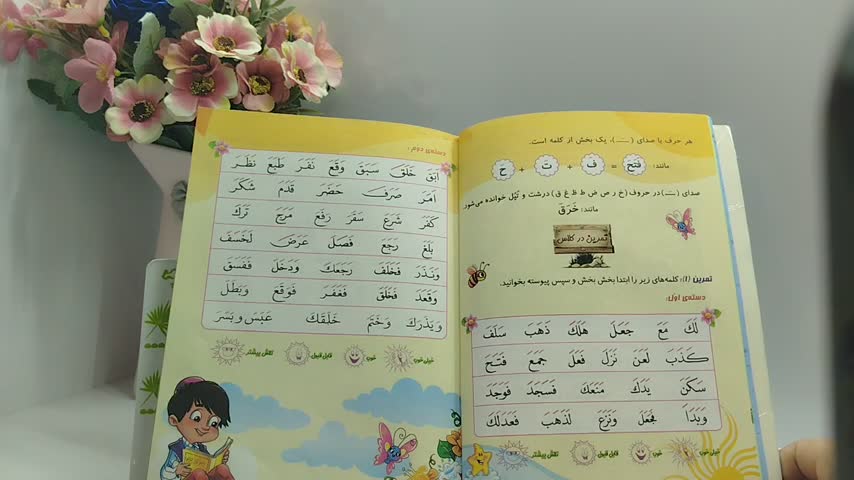 هر حرف با صدای (ـَـ)، یک بخش از کلمه است.
مانند: فَتَحَ = فَ + تَ + حَ
صدای (ـَـ) در حروف (خ ر ص ض ط ظ غ ق) درشت و تپل خوانده می‌شود.
مانند: خَرَقَ
تمرین در کلاس
تمرین (۱): کلمه‌های زیر را ابتدا بخش بخش و سپس پیوسته بخوانید.
دسته‌ی اول:
لَكَ مَعَ جَعَلَ هَلَكَ ذَهَبَ سَلَفَ
كَذَبَ لَعَنَ نَزَلَ فَعَلَ جَمَعَ فَتَحَ
سَكَنَ يَدَكَ مَنَعَكَ فَسَجَدَ فَوَجَدَ
وَبَدَاَ فَجَعَلَ وَنَزَعَ لَذَهَبَ فَعَدَلَكَ
خیلی خوب خوب قابل قبول تلاش بیشتر
دسته‌ی دوم:
اَبَقَ خَلَقَ سَبَقَ وَقَعَ نَفَرَ طَبَعَ نَظَرَ
اَمَرَ صَرَفَ حَضَرَ قَدَمَ شَكَرَ
كَفَرَ شَرَعَ سَقَرَ رَفَعَ مَرَجَ تَرَكَ
بَلَغَ رَجَعَ فَصَلَ عَرَضَ لَخَسَفَ
وَنَذَرَ فَخَلَفَ رَجَعَكَ وَدَخَلَ فَفَسَقَ
وَقَعَدَ فَخَلَقَ فَغَفَرَ فَوَقَعَ وَبَطَلَ
وَيَذَرَكَ وَخَتَمَ خَلَقَكَ عَبَسَ وَبَسَرَ
خیلی خوب خوب قابل قبول تلاش بیشتر